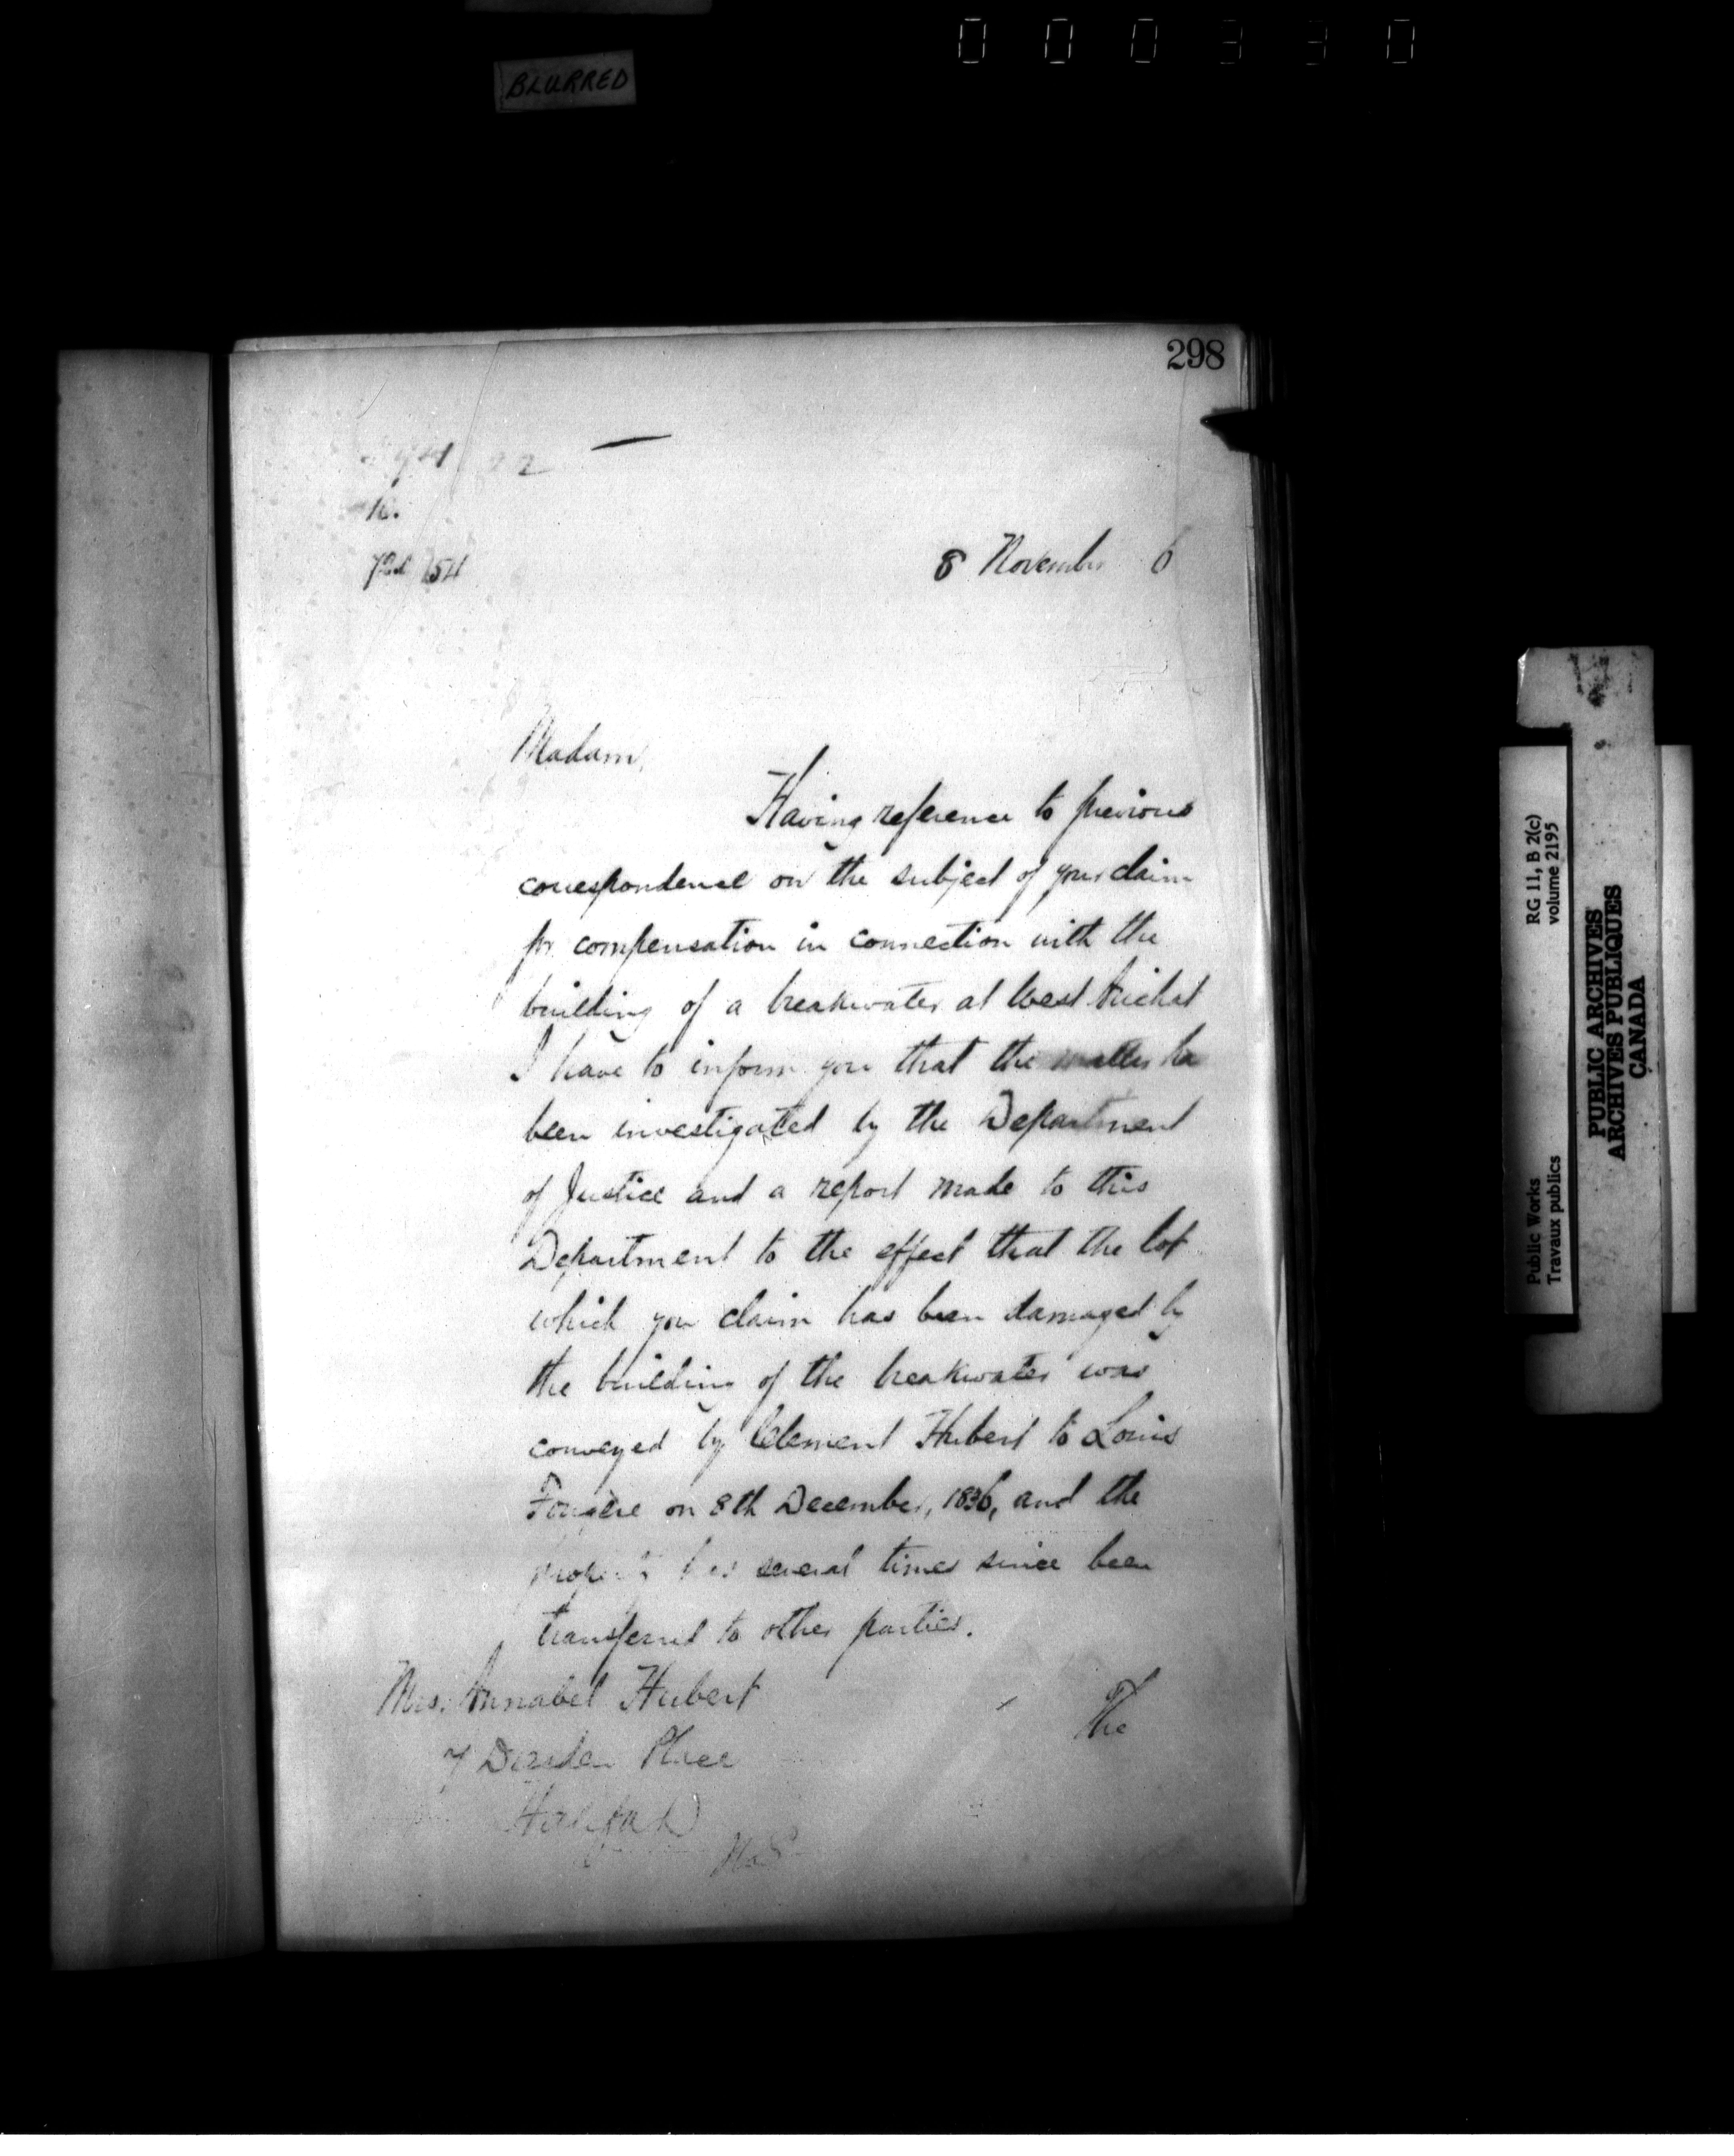 000330
BLURRED
298
8 November 6
Madam,
Having reference to previous
correspondence on the subject of your claim
for compensation in connection with the
building of a breakwater at West Arichat
I have to inform you that the matter ha
been investigated by the Department
of Justice and a report made to this
Department to the effect that the lot
which you claim has been damaged by
the building of the breakwater was
conveyed by Clement Hubert to Louis
Fougere on 8th December, 1896, and the
property has several times since been
transferred to other parties.
Mrs. Annabel Hubert
Place
Halifax
N.S.
The
RG 11, B 2(c)
volume 2195
Public Works
Travaux publics
PUBLIC ARCHIVES
ARCHIVES PUBLIQUES
CANADA